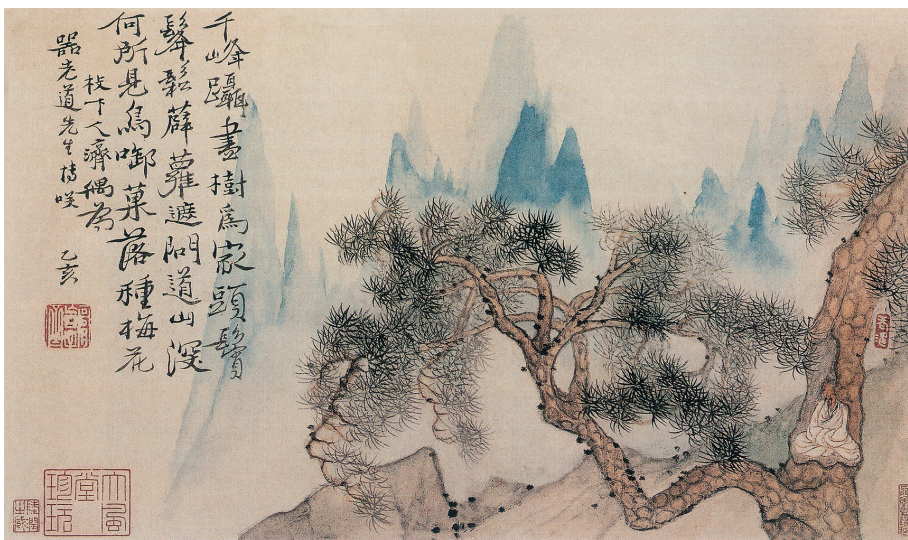 千峰躡盡樹為家頭鬢
髼鬆薜蘿遮問道山深
何所見鳥啣菓落種梅花
枝下人濟偶為
器老道先生博咲 乙亥
大風堂珍玩